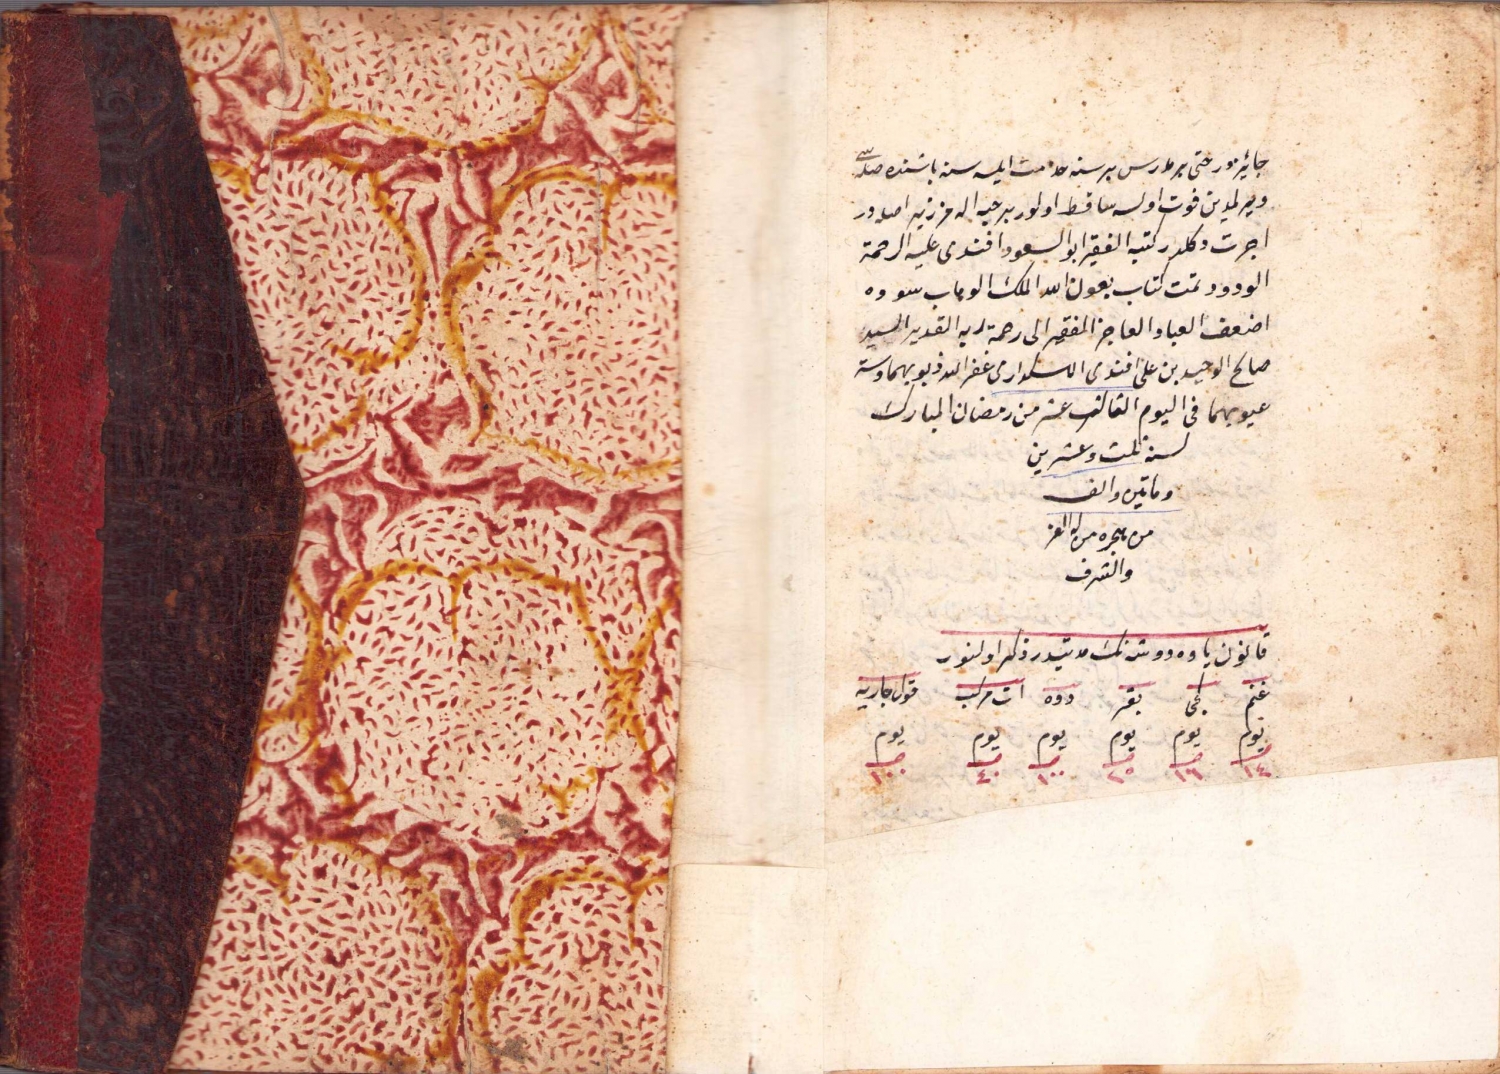 جائيزدر حتى بر مدرس بر سنه خدمت ايلسه سنه باشنده صله سى
ويرلمدين فوت اولسه ساقط اولور بر حبه الهمز زيرا صله در
اجرت دكلدر كتبه الفقير ابو السعود افندى عليه الرحمة
الودود تمت كتاب بعون الله الملك الوهاب سوده
اضعف العباد العاجز المفتقر الى رحمة ربه القدير السيد
صالح الوحيد بن على افندى الاسكدارى غفر الله ذنوبهما وستر
عيوبهما فى اليوم الثالث عشر من رمضان المبارك
لسنة ثلث وعشرين
وماتين والف
من هجره من له العز
والشرف
قانون ياوه دوشنك مدتيدر ذكر اولنور
غنم كچى بقر دوه ات مركب قول جاريه
يوم يوم يوم يوم يوم يوم